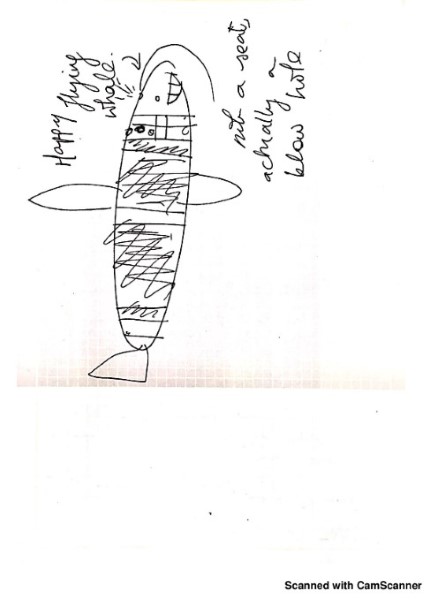 Happy
flying
whale.
not a seat,
actually a
blow hole
Scanned with CamScanner